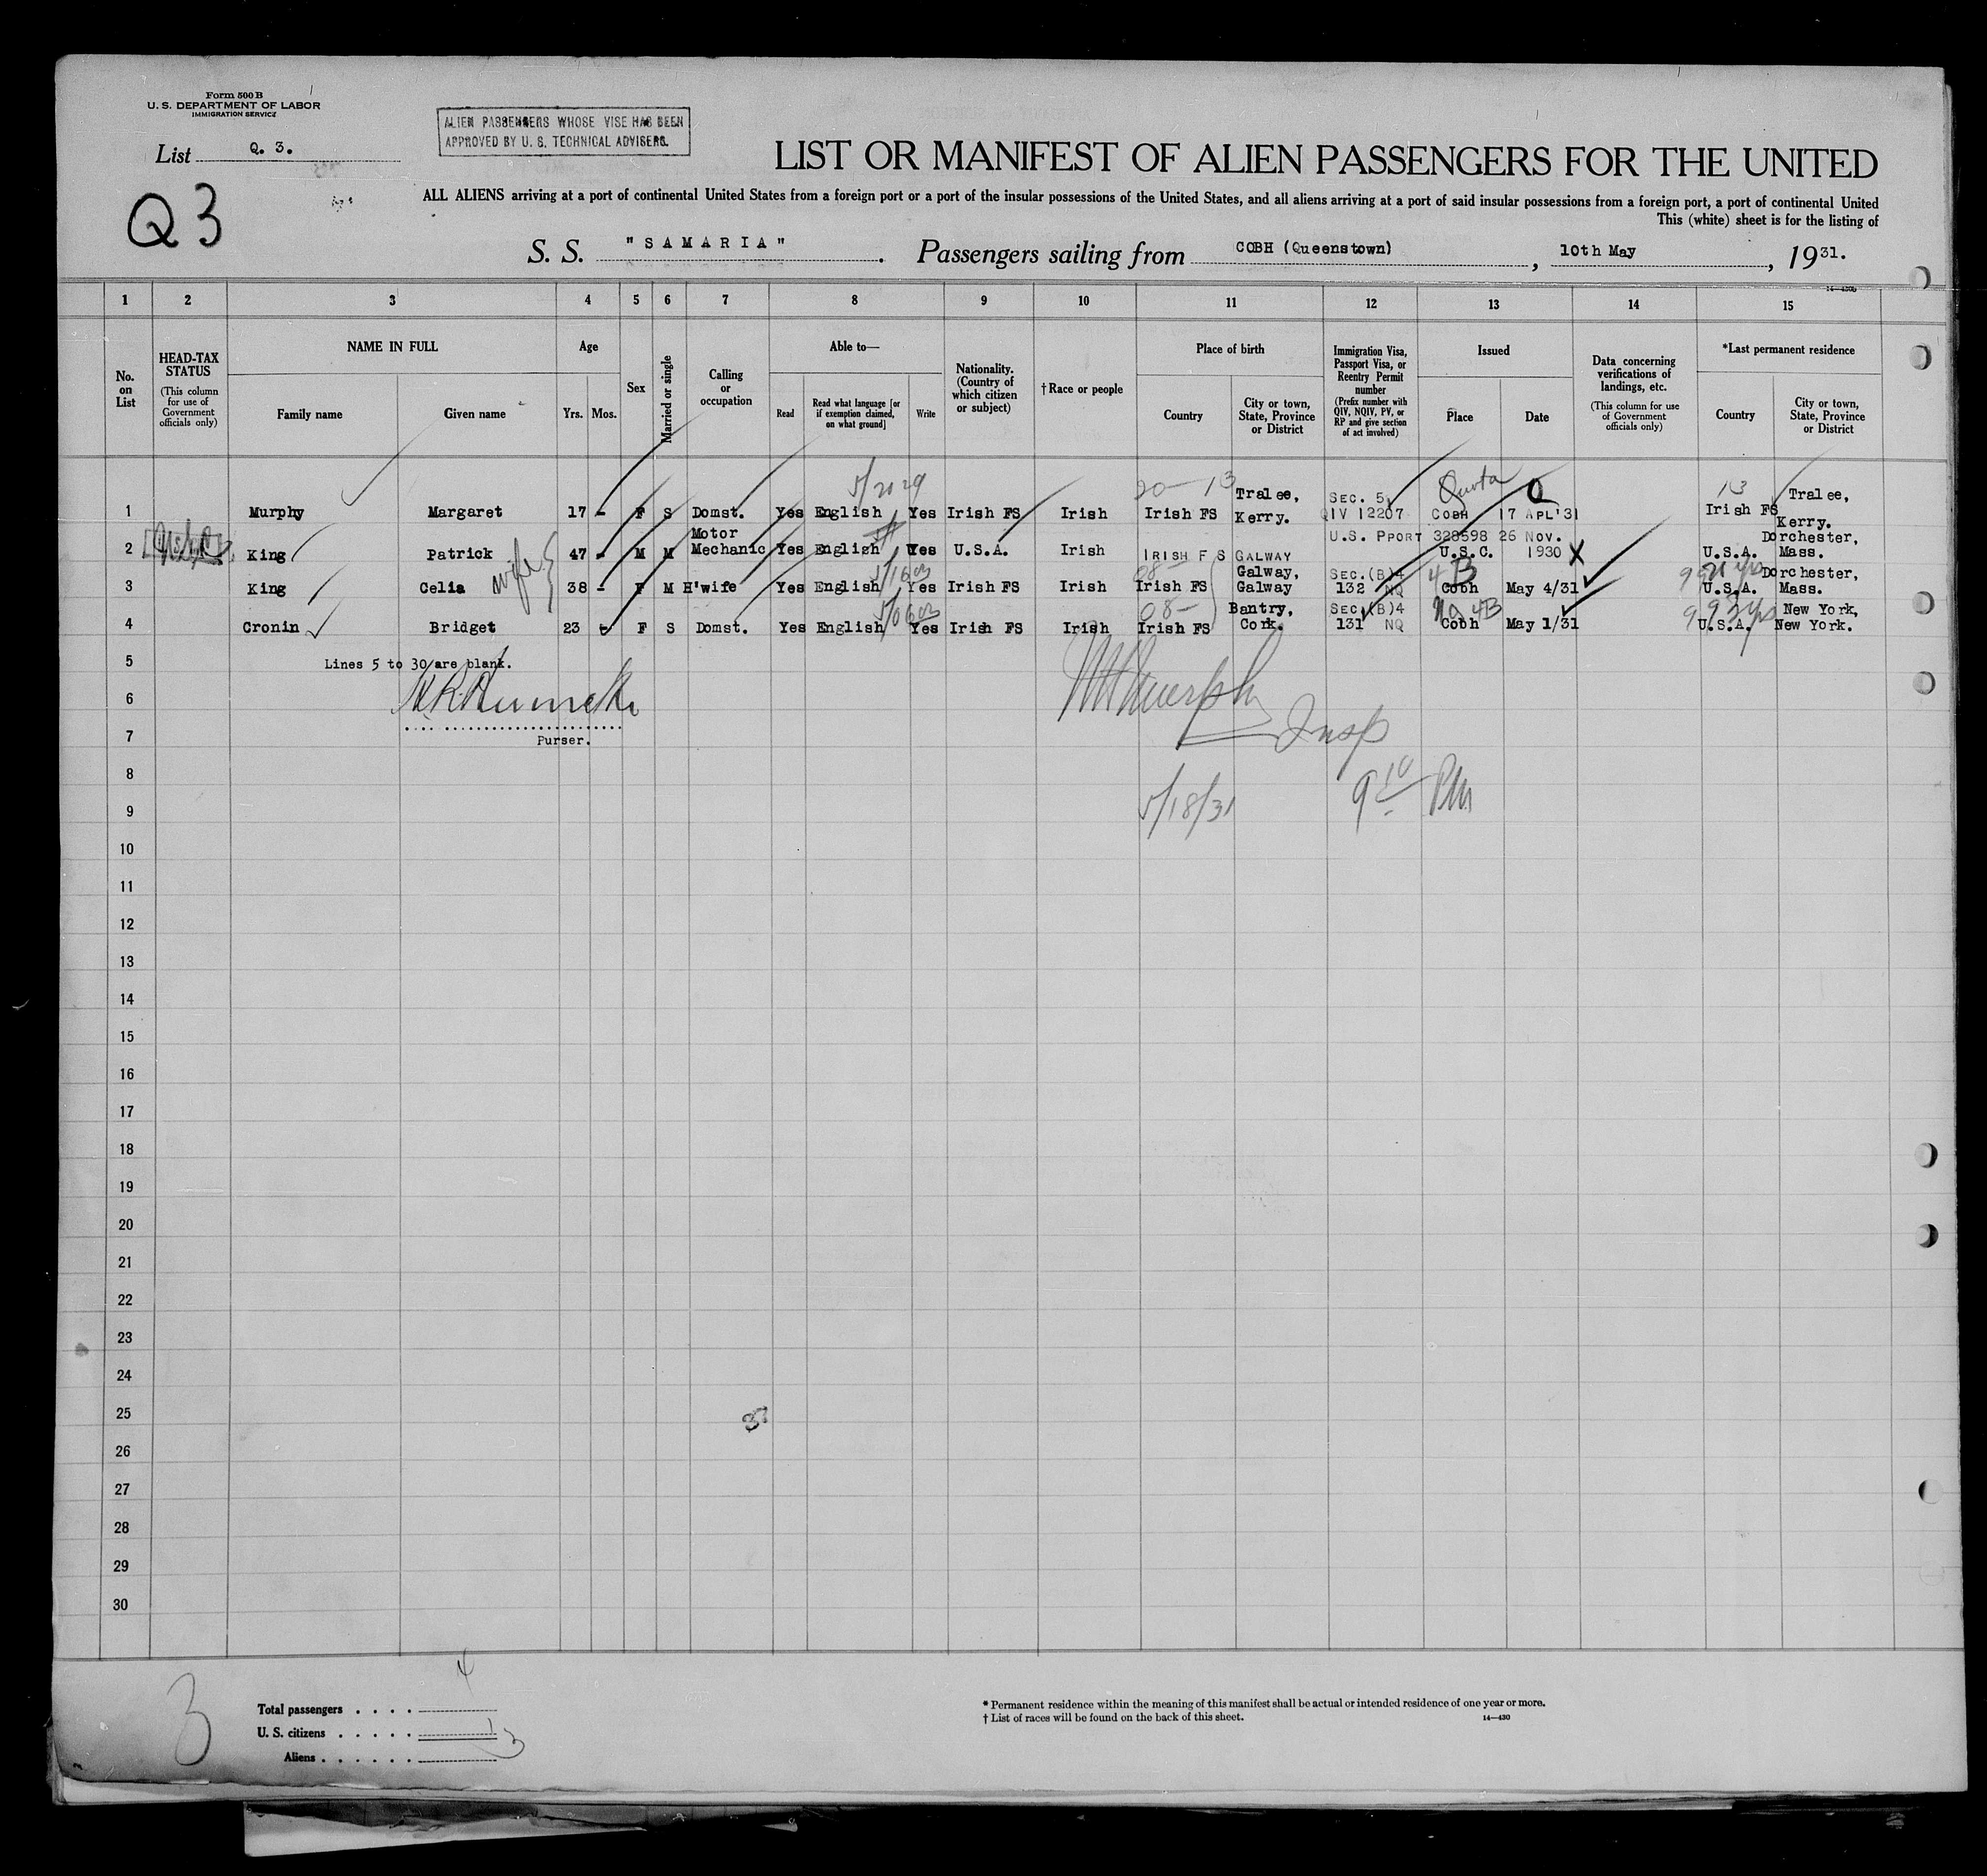 Form 500 B
U. S. DEPARTMENT OF LABOR
IMMIGRATION SERVICE
List Q. 3.
Q3
ALIEN PASSENGERS WHOSE VISE HAS BEEN
APPROVED BY U. S. TECHNICAL ADVISERS.
LIST OR MANIFEST OF ALIEN PASSENGERS FOR THE UNITED
ALL ALIENS arriving at a port of continental United States from a foreign port or a port of the insular possessions of the United States, and all aliens arriving at a port of said insular possessions from a foreign port, a port of continental United
This (white) sheet is for the listing of
S. S. "SAMARIA". Passengers sailing from COBH (Queenstown), 10th May, 1931.
14—430b
1 2 3 4 5 6 7 8 9 10 11 12 13 14 15
No. on List
HEAD-TAX STATUS
(This column for use of Government officials only)
NAME IN FULL
Family name
Given name
Age
Yrs.
Mos.
Sex
Married or single
Calling or occupation
Able to—
Read
Read what language [or if exemption claimed, on what ground]
Write
Nationality. (Country of which citizen or subject)
† Race or people
Place of birth
Country
City or town, State, Province or District
Immigration Visa, Passport Visa, or Reentry Permit number
(Prefix number with QIV, NQIV, PV, or RP and give section of act involved)
Issued
Place
Date
Data concerning verifications of landings, etc.
(This column for use of Government officials only)
*Last permanent residence
Country
City or town, State, Province or District
5/20 29 20—13 Quota 13
1 Murphy Margaret 17 - F S Domst. Yes English Yes Irish FS Irish Irish FS Tralee, Kerry. SEC. 5, QIV 12207 COBH 17 APL'31 Irish FS Tralee, Kerry.
2 King Patrick 47 - M M Motor Mechanic Yes English Yes U.S.A. Irish IRISH F S GALWAY U.S. PPORT 328598 26 NOV. U.S.C. 1930 X U.S.A. Dorchester, Mass.
wife
3 King Celia 38 - F M H'wife Yes English Yes Irish FS Irish 08— Irish FS Galway, Galway SEC.(B)4 132 NQ 4B Cobh May 4/31 U.S.A. Dorchester, Mass.
4 Cronin Bridget 23 - F S Domst. Yes English Yes Irish FS Irish 08— Irish FS Bantry, Cork. SEC.(B)4 131 NQ 4B Cobh May 1/31 U.S.A. New York, New York.
5 Lines 5 to 30 are blank.
6
7 Purser.
Murphy
Insp
8
5/18/31 9 10 PM
9
10
11
12
13
14
15
16
17
18
19
20
21
22
23
24
25
26
27
28
29
30
3
Total passengers . . . . 4
U. S. citizens . . . . . 1
Aliens . . . . . . 3
* Permanent residence within the meaning of this manifest shall be actual or intended residence of one year or more.
† List of races will be found on the back of this sheet.
14—430